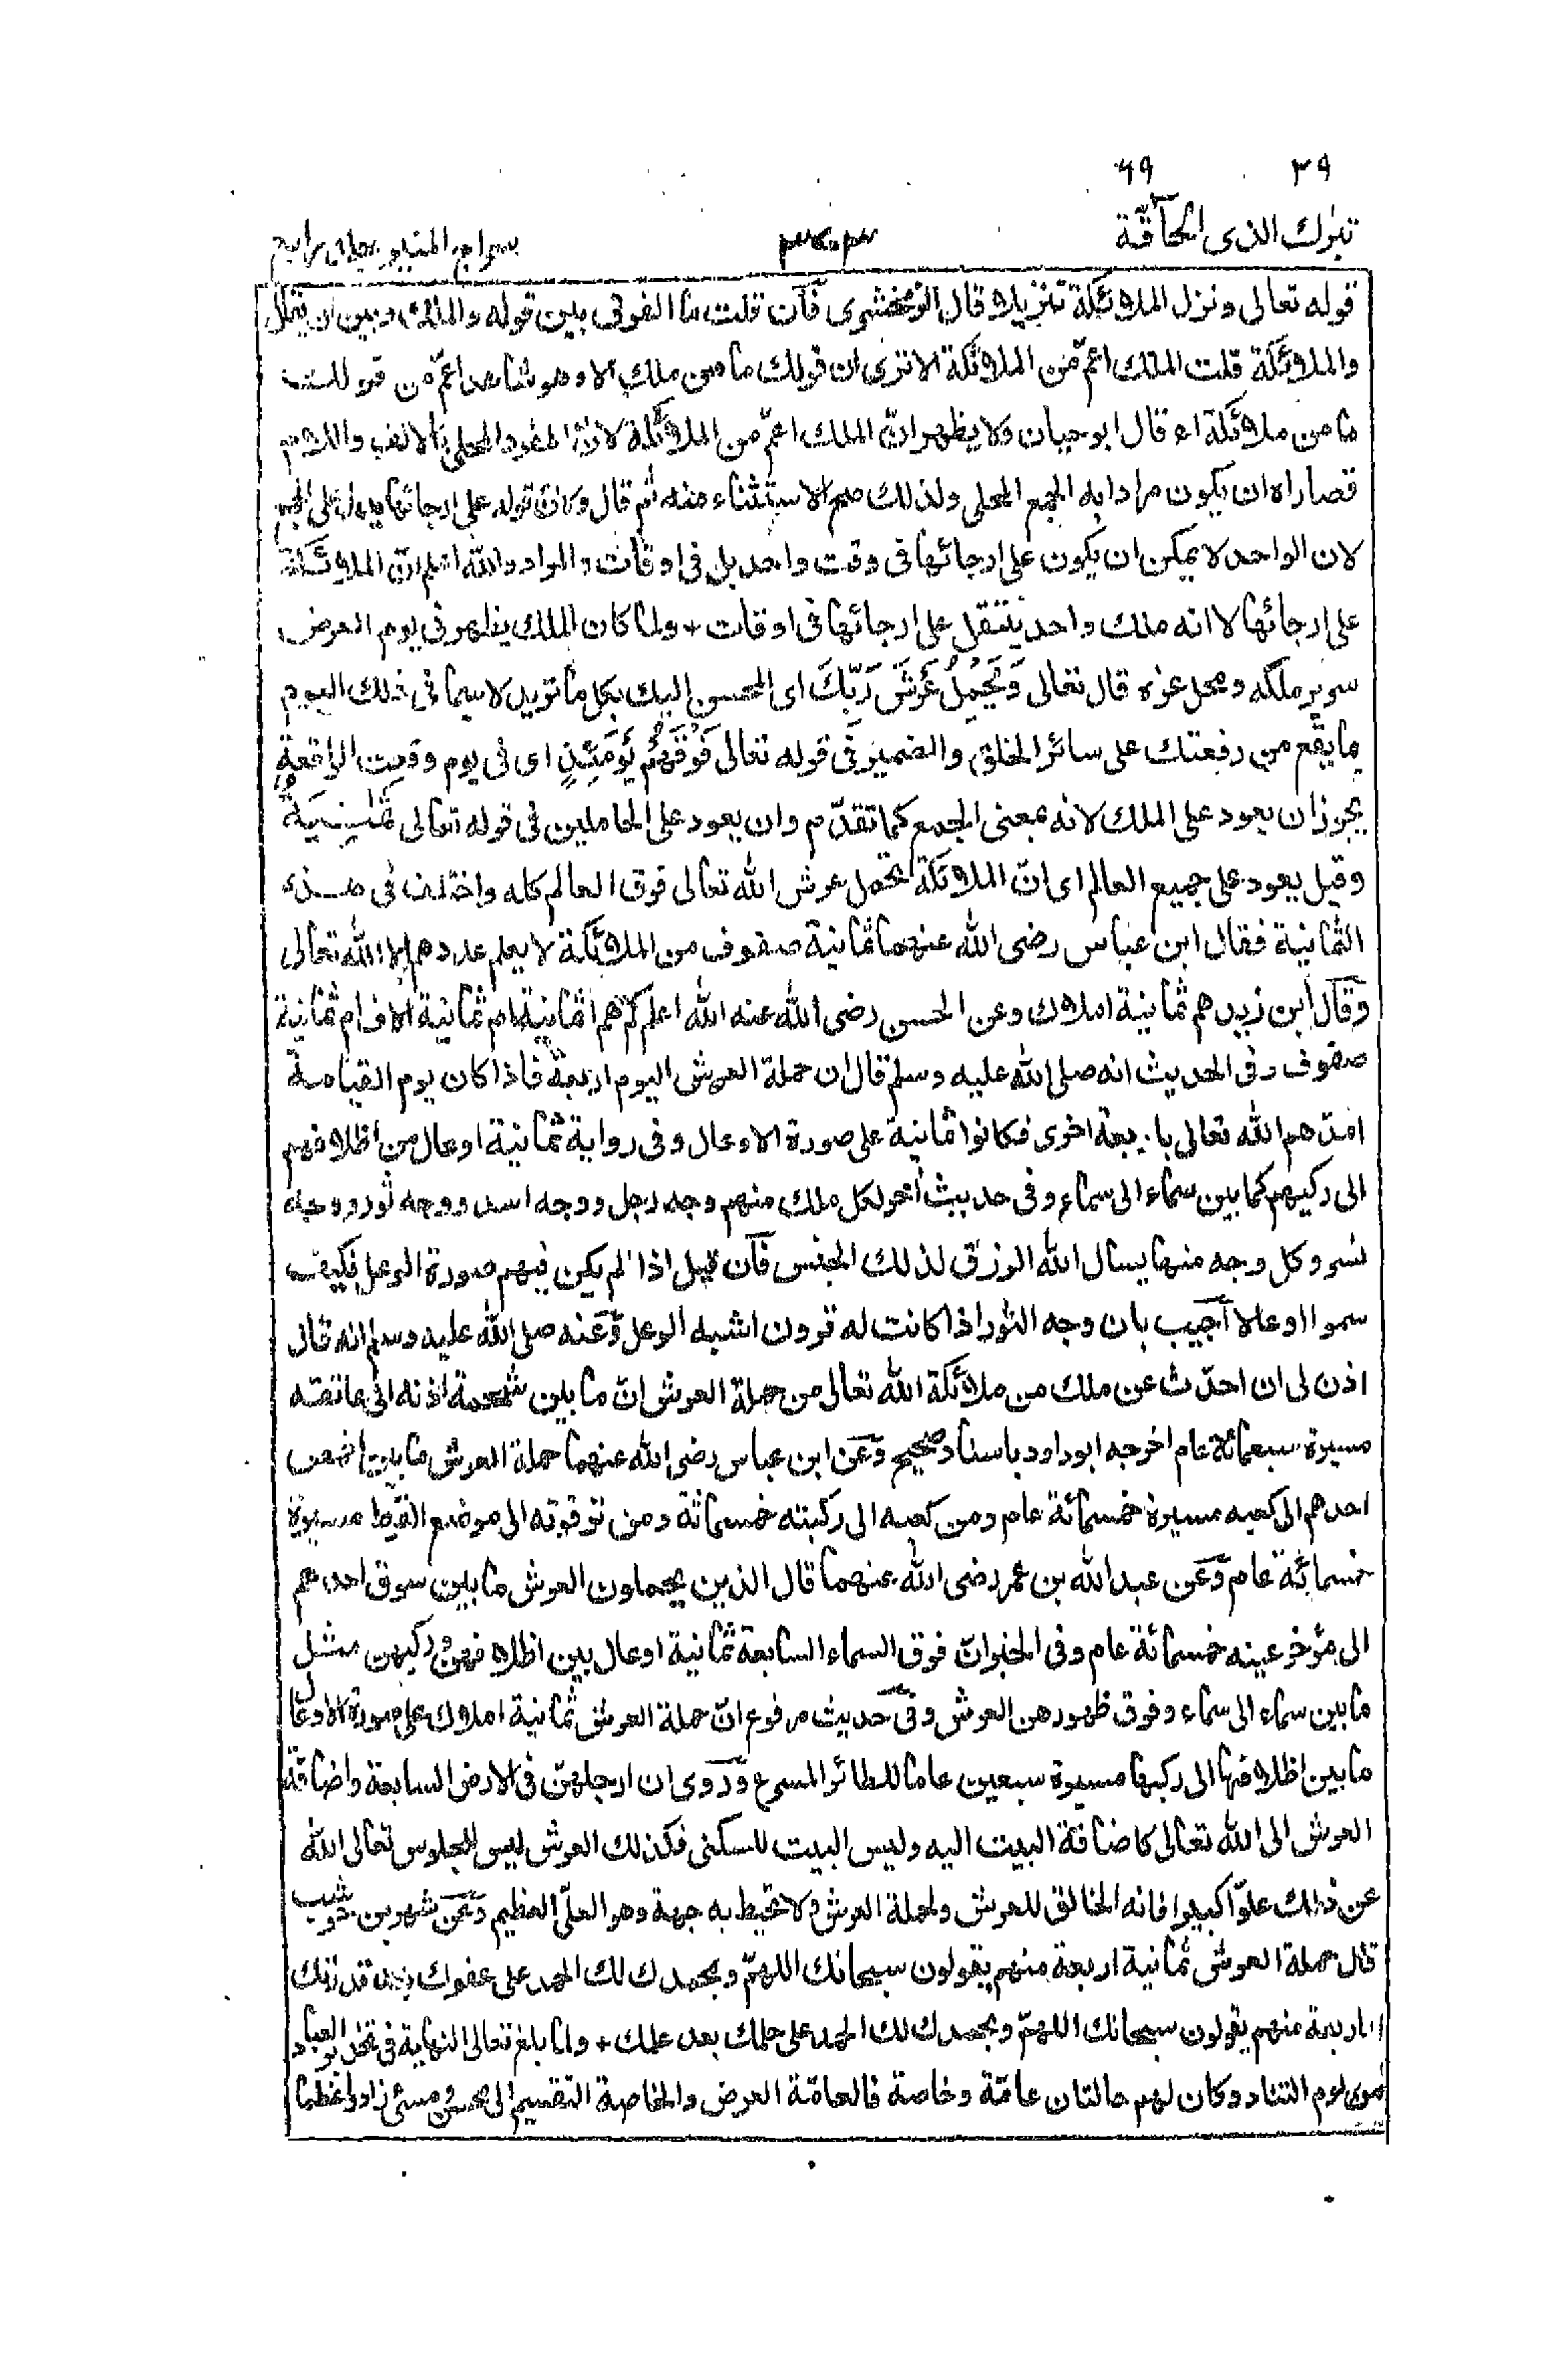 ٢٩ ٦٩
تبٰرك الذى الحآقّة سراج المنير جلد رابع
قوله تعالى ونزل الملائكة تنزيلا قال الزمخشرى فان قلت ما الفرق بين قوله والملك وبين ان يقال
والملائكة قلت الملك اعمّ من الملائكة الا ترى ان قولك ما من ملك الا وهو شاهد اعمّ من قولك
ما من ملائكة اھ قال ابو حيان ولا يظهر انّ الملك اعمّ من الملائكة لانّ المفرد المحلى بالالف واللام
قصاراه ان يكون مرادا به الجمع المحلى ولذلك صح الاستثناء منه ثم قال ولانّ قوله على ارجائها يدل على الجمع
لان الواحد لا يمكن ان يكون على ارجائها فى وقت واحد بل فى اوقات والمراد والله اعلم انّ الملائكة
على ارجائها لا انه ملك واحد ينتقل على ارجائها فى اوقات + ولما كان الملك يظهر فى يوم العرض
سرير ملكه ومحل عزه قال تعالى وَيَحْمِلُ عَرْشَ رَبِّكَ اى المحسن اليك بكل ما تريد لا سيما فى ذلك اليوم
بما يقع من رفعتك على سائر الخلق والضمير فى قوله تعالى فَوْقَهُمْ يَوْمَئِذٍ اى فى يوم وقعت الواقعة
يجوز ان يعود على الملك لانه بمعنى الجمع كما تقدّم وان يعود على الحاملين فى قوله تعالى ثَمٰنِيَةٌ
وقيل يعود على جميع العالم اى انّ الملائكة تحمل عرش الله تعالى فوق العالم كله واختلف فى هذه
الثمانية فقال ابن عباس رضى الله عنهما ثمانية صفوف من الملائكة لا يعلم عددهم الا الله تعالى
وقال ابن زيد هم ثمانية املاك وعن الحسن رضى الله عنه الله اعلم كم هم اثمانية ام ثمانية الاف ام ثمانية
صفوف وفى الحديث انه صلى الله عليه وسلم قال ان حملة العرش اليوم اربعة فاذا كان يوم القيامة
امدّهم الله تعالى باربعة اخرى فكانوا ثمانية على صورة الاوعال وفى رواية ثمانية اوعال من اظلافهم
الى ركبهم كما بين سماء الى سماء وفى حديث اخر لكل ملك منهم وجه رجل ووجه اسد ووجه ثور ووجه
نسر وكل وجه منها يسال الله الرزق لذلك الجنس فان قيل اذا لم يكن فيهم صورة الوعل فكيف
سموا اوعالا اجيب بان وجه الثور اذا كانت له قرون اشبه الوعل وعنه صلى الله عليه وسلم انه قال
اذن لى ان احدّث عن ملك من ملائكة الله تعالى من حملة العرش انّ ما بين شحمة اذنه الى عاتقه
مسيرة سبعمائة عام اخرجه ابو داود باسناد صحيح وعن ابن عباس رضى الله عنهما حملة العرش ما بين اخمص
احدهم الى كعبه مسيرة خمسمائة عام ومن كعبه الى ركبته خمسمائة ومن ترقوته الى موضع القرط مسيرة
خسمائة عام وعن عبد الله بن عمر رضى الله عنهما قال الذين يحملون العرش ما بين سوق احدهم
الى مؤخر عينه خمسمائة عام وفى الخبر انّ فوق السماء السابعة ثمانية اوعال بين اظلافهن وركبهن مثل
ما بين سماء الى سماء وفوق ظهورهن العرش وفى حديث مرفوع انّ حملة العرش ثمانية املاك على صورة الاوعال
ما بين اظلافها الى ركبها مسيرة سبعين عاما للطائر المسرع وروى ان ارجلهنّ فى الارض السابعة واضافة
العرش الى الله تعالى كاضافة البيت اليه وليس البيت للسكنى فكذلك العرش ليس للجلوس تعالى الله
عن ذلك علوّا كبيرا فانه الخالق للعرش ولحملة العرش ولا تحيط به جهة وهو العلىّ العظيم وعن شهر بن حوشب
قال حملة العرش ثمانية اربعة منهم يقولون سبحانك اللهمّ وبحمدك لك الحمد على عفوك بعد قدرتك
واربعة منهم يقولون سبحانك اللهمّ وبحمدك لك الحمد على حلمك بعد علمك + ولما بلغ تعالى النهاية فى تحذير العباد
من يوم التناد وكان لهم حالتان عامّة وخاصة فالعامّة العرض والخاصة التقسيم الى محسن ومسئ زاد تعظيما